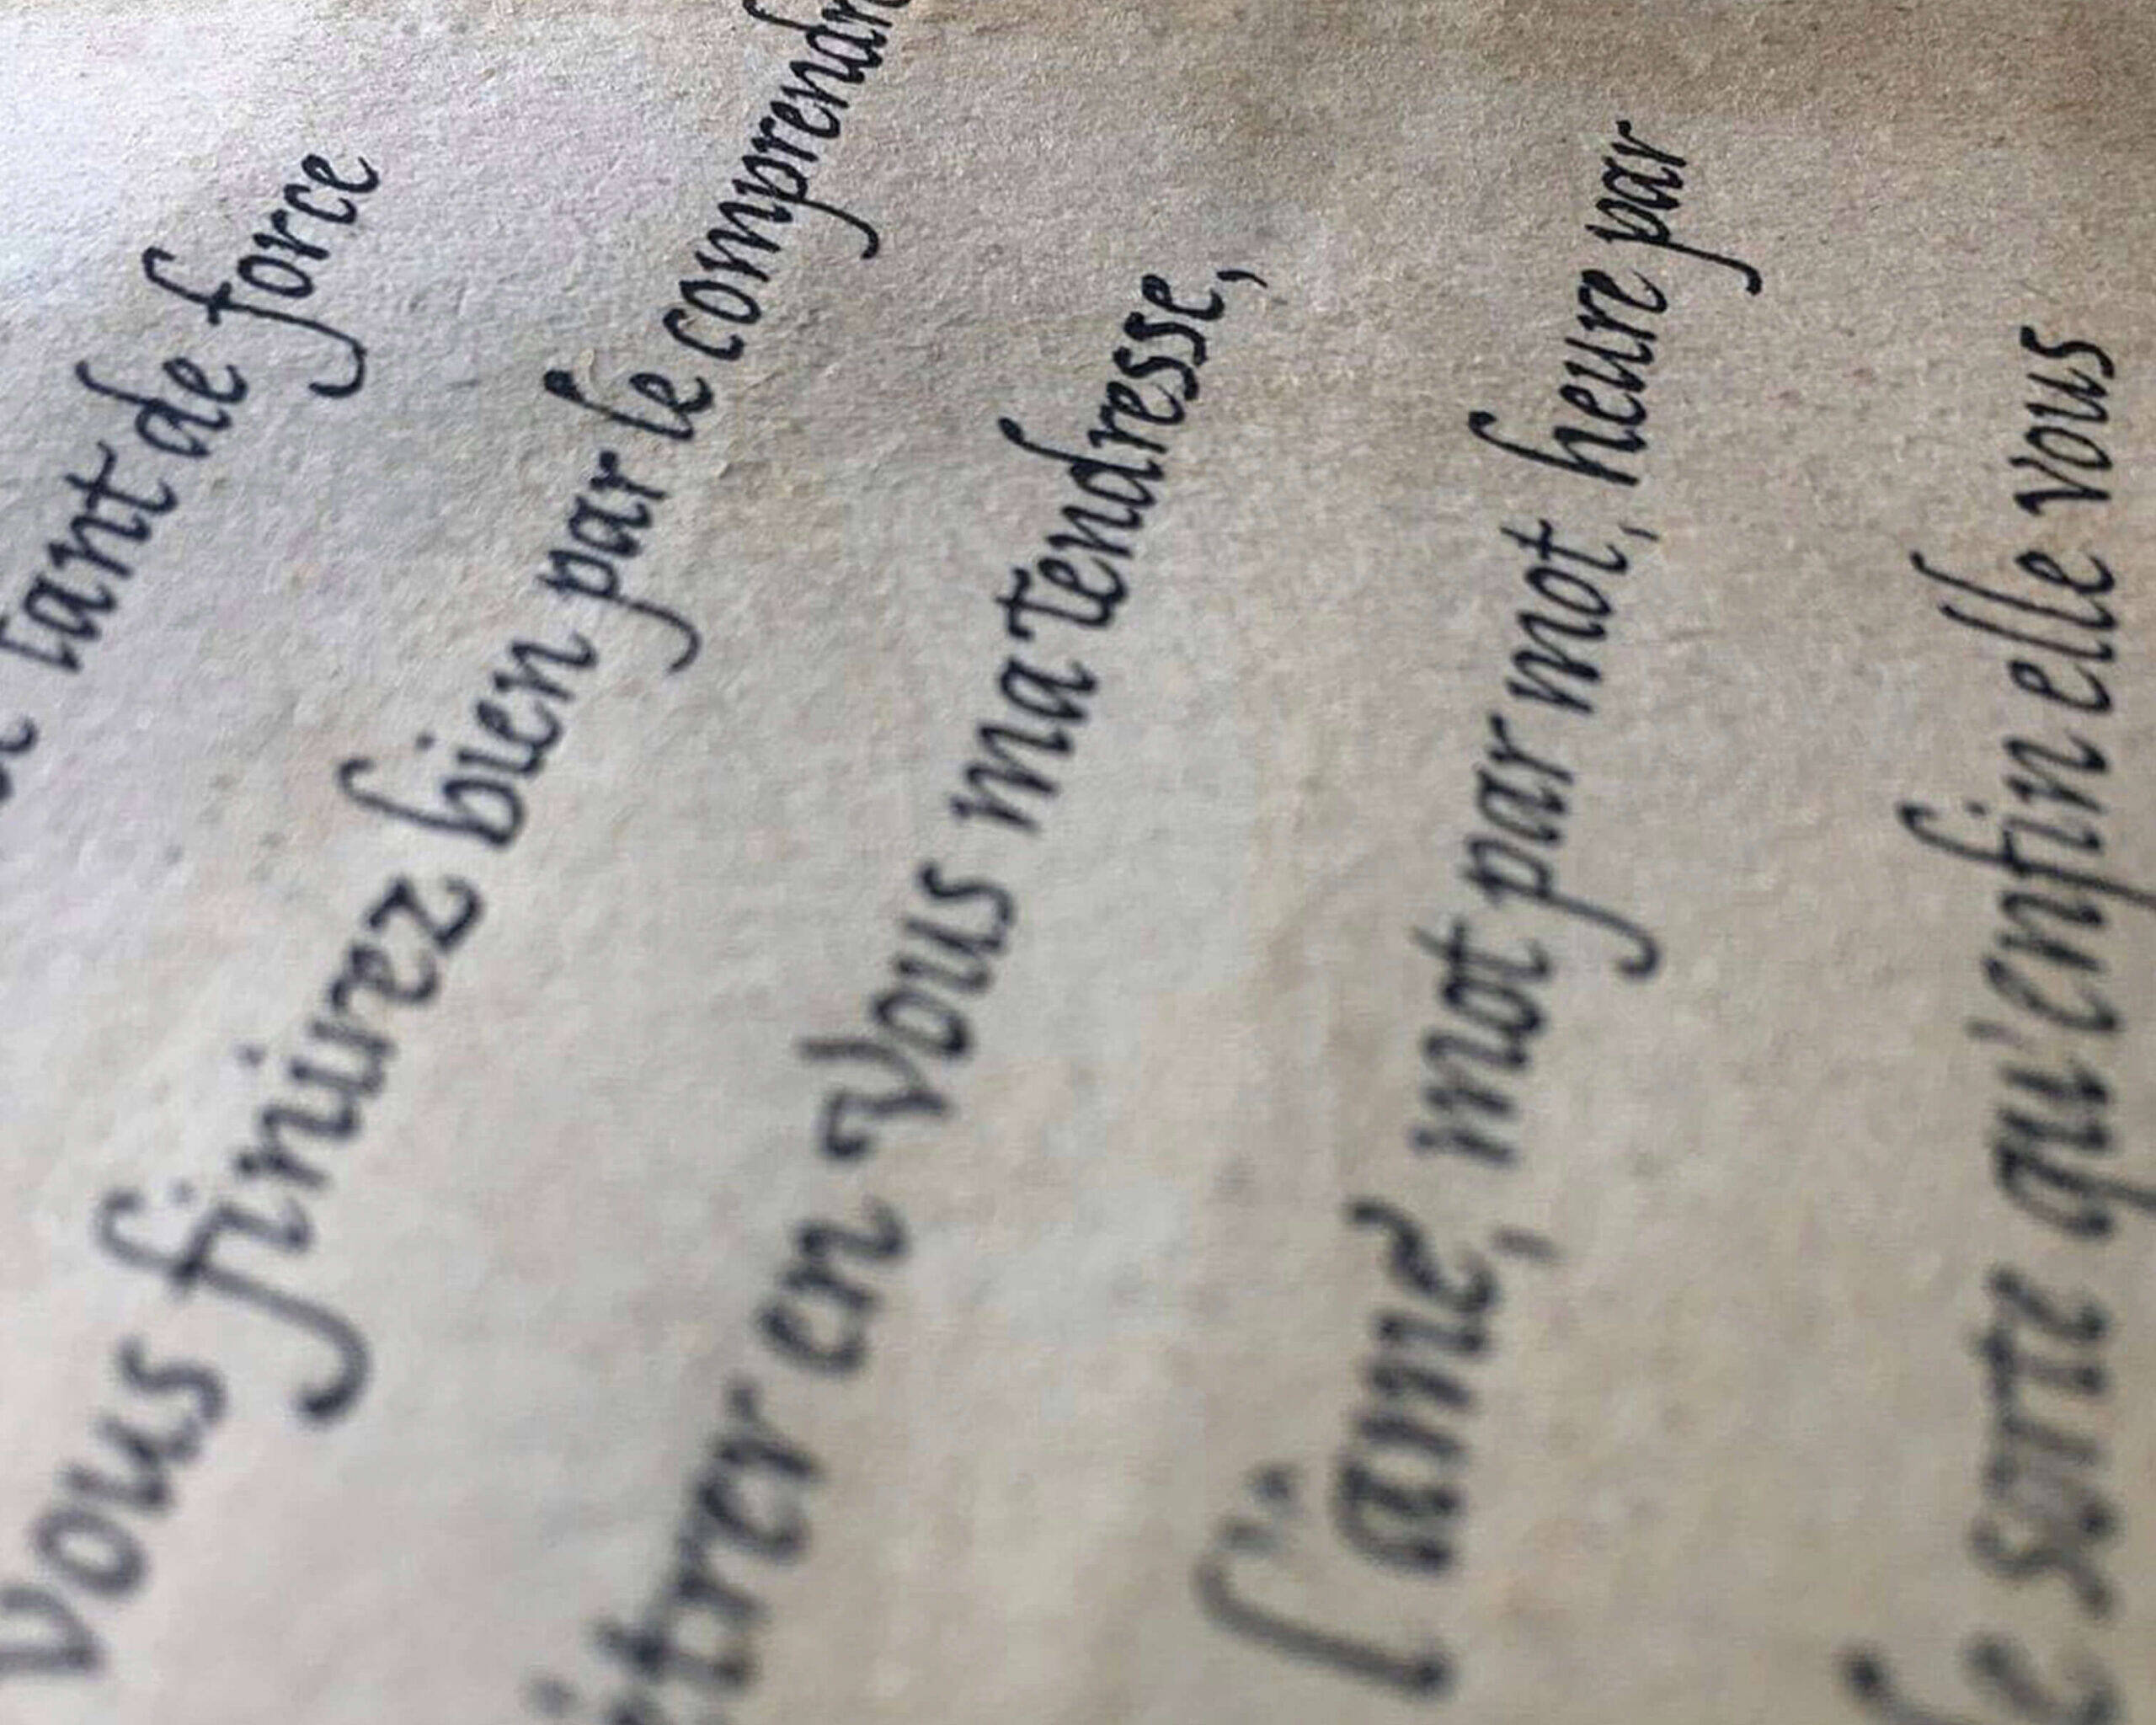 tant de force
vous finirez bien par le comprendr
itrer en vous ma tendresse,
l'aime, mot par mot, heure par
de sorte qu'enfin elle vous